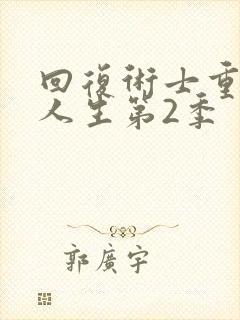 回復術士重
人生第2季
郭廣宇